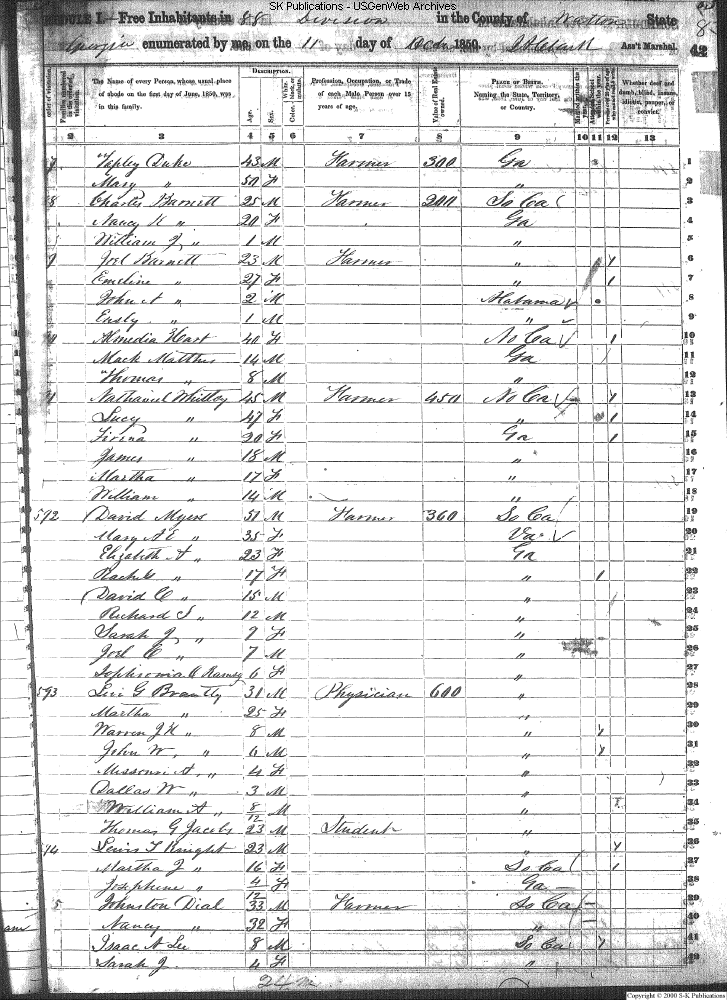 SK Publications - USGenWeb Archives
SCHEDULE I.- Free Inhabitants in 88 Division in the County of Walton State
Georgia enumerated by me, on the 11 day of Octr 1850. Ass't Marshal. 42
Description.
The Name of every Person whose usual place of abode on the first day of June, 1850, was in this family.
Age. Sex. Color.
Profession, Occupation, or Trade of each Male Person over 15 years of age.
Value of Real Estate owned.
Place of Birth. Naming the State, Territory, or Country.
Whether deaf and dumb, blind, insane, idiotic, pauper, or convict.
2 3 4 5 6 7 8 9 10 11 12 13
Duke 43 M Farmer 300 Ga 1
Mary " 50 F " 2
8 Charles Barnett 25 M Farmer 200 So Ca 3
Nancy " 20 F Ga 4
William J " 1 M " 5
9 Joel Barnett 23 M Farmer " 1 6
Emeline " 27 F " 1 7
John A " 2 M Alabama 8
Easly " 1 M " 9
Almedia Hart 40 F No Ca 1 10
Mack Matthis 14 M Ga 11
Thomas " 8 M " 12
Nathaniel Whitloy 45 M Farmer 450 No Ca 1 13
Lucy " 47 F " 1 14
" 20 F Ga 1 15
James " 18 M " 16
Martha " 17 F " 17
William " 14 M " 18
592 David Myers 51 M Farmer 360 So Ca 19
Mary A E " 35 F Va 20
Elizabeth A " 23 F Ga 21
Rachel " 17 F " 1 22
David C " 15 M " 23
Richard S " 12 M " 24
Sarah J " 9 F " 25
Joel E " 7 M " 26
Sophronia C Ramsy 6 F " 27
593 Levi G Brantly 31 M Physician 600 " 28
Martha " 25 F " 29
Warren J H " 8 M " 1 30
John W, " 6 M " 1 31
Missouri A, " 4 F " 32
Dallas W " 3 M " 33
William A " 8/12 M " 34
Thomas G Jacobs 23 M Student " 35
94 Lewis T Knight 23 M " 1 26
Martha J " 16 F So Ca 1 27
Josephine " 4/12 F Ga 28
5 Johnston Dial 33 M Farmer So Ca 29
Nancy " 32 F " 40
Isaac N Lee 8 M So Ca 1 41
Sarah J 4 F " 42
24 m
Copyright © 2000 S-K Publications